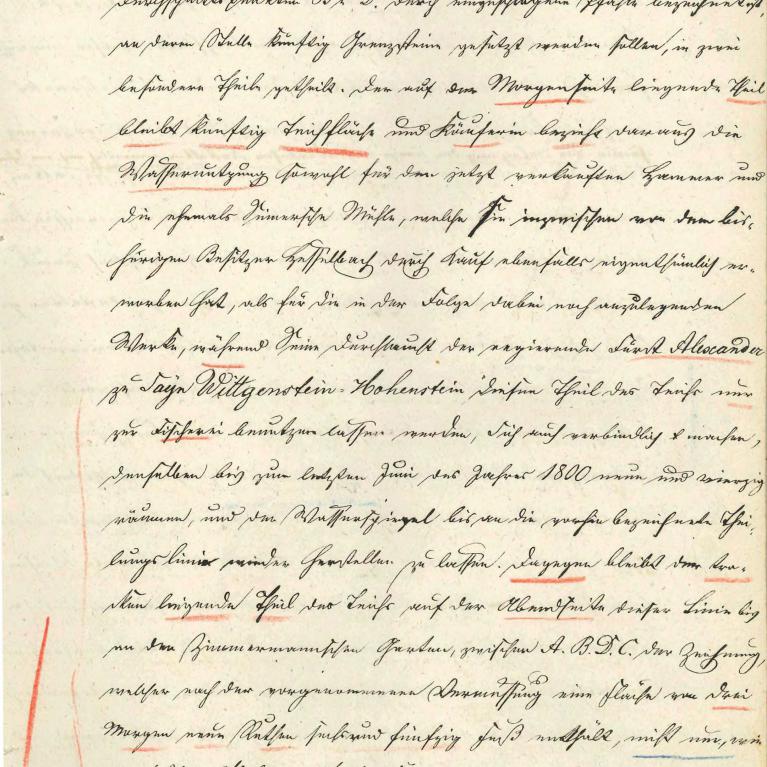 an deren Stelle künftig Grenzsteine gesetzt werden sollen, in zwei
besondere Theile getheilt. Der auf der Morgenseite liegende Theil
bleibt künftig Teichfläche und Käuferin bezieht daraus die
Wassernutzung sowohl für den jetzt verkauften Hammer und
die ehemals Mühle, welche sie inzwischen von dem bis-
herigen Besitzer Hesselbach durch Kauf ebenfalls eigenthümlich er-
worben hat, als für die in der Folge dabei noch anzulegenden
Werke, während Seine Durchlaucht der regierende Fürst Alexander
zu Sayn Wittgenstein-Hohenstein diesen Theil des Teichs nur
zur Fischerei benutzen lassen werden, sich auch verbindlich machen,
denselben bis zum letzten Juni des Jahres 1800 neun und vierzig
räumen, und den Wasserspiegel bis an die vorhin bezeichnete Thei-
lungslinie wieder herstellen zu lassen. Dagegen bleibt der tro-
cken liegende Theil des Teichs auf der Abendseite dieser Linie bis
an den Zimmermannschen Garten, zwischen A. B. D. C. der Zeichnung,
welcher nach der vorgenommenen Vermessung eine Fläche von drei
Morgen neun Ruthen sechs und fünfzig Fuß enthält, nicht nur, wie